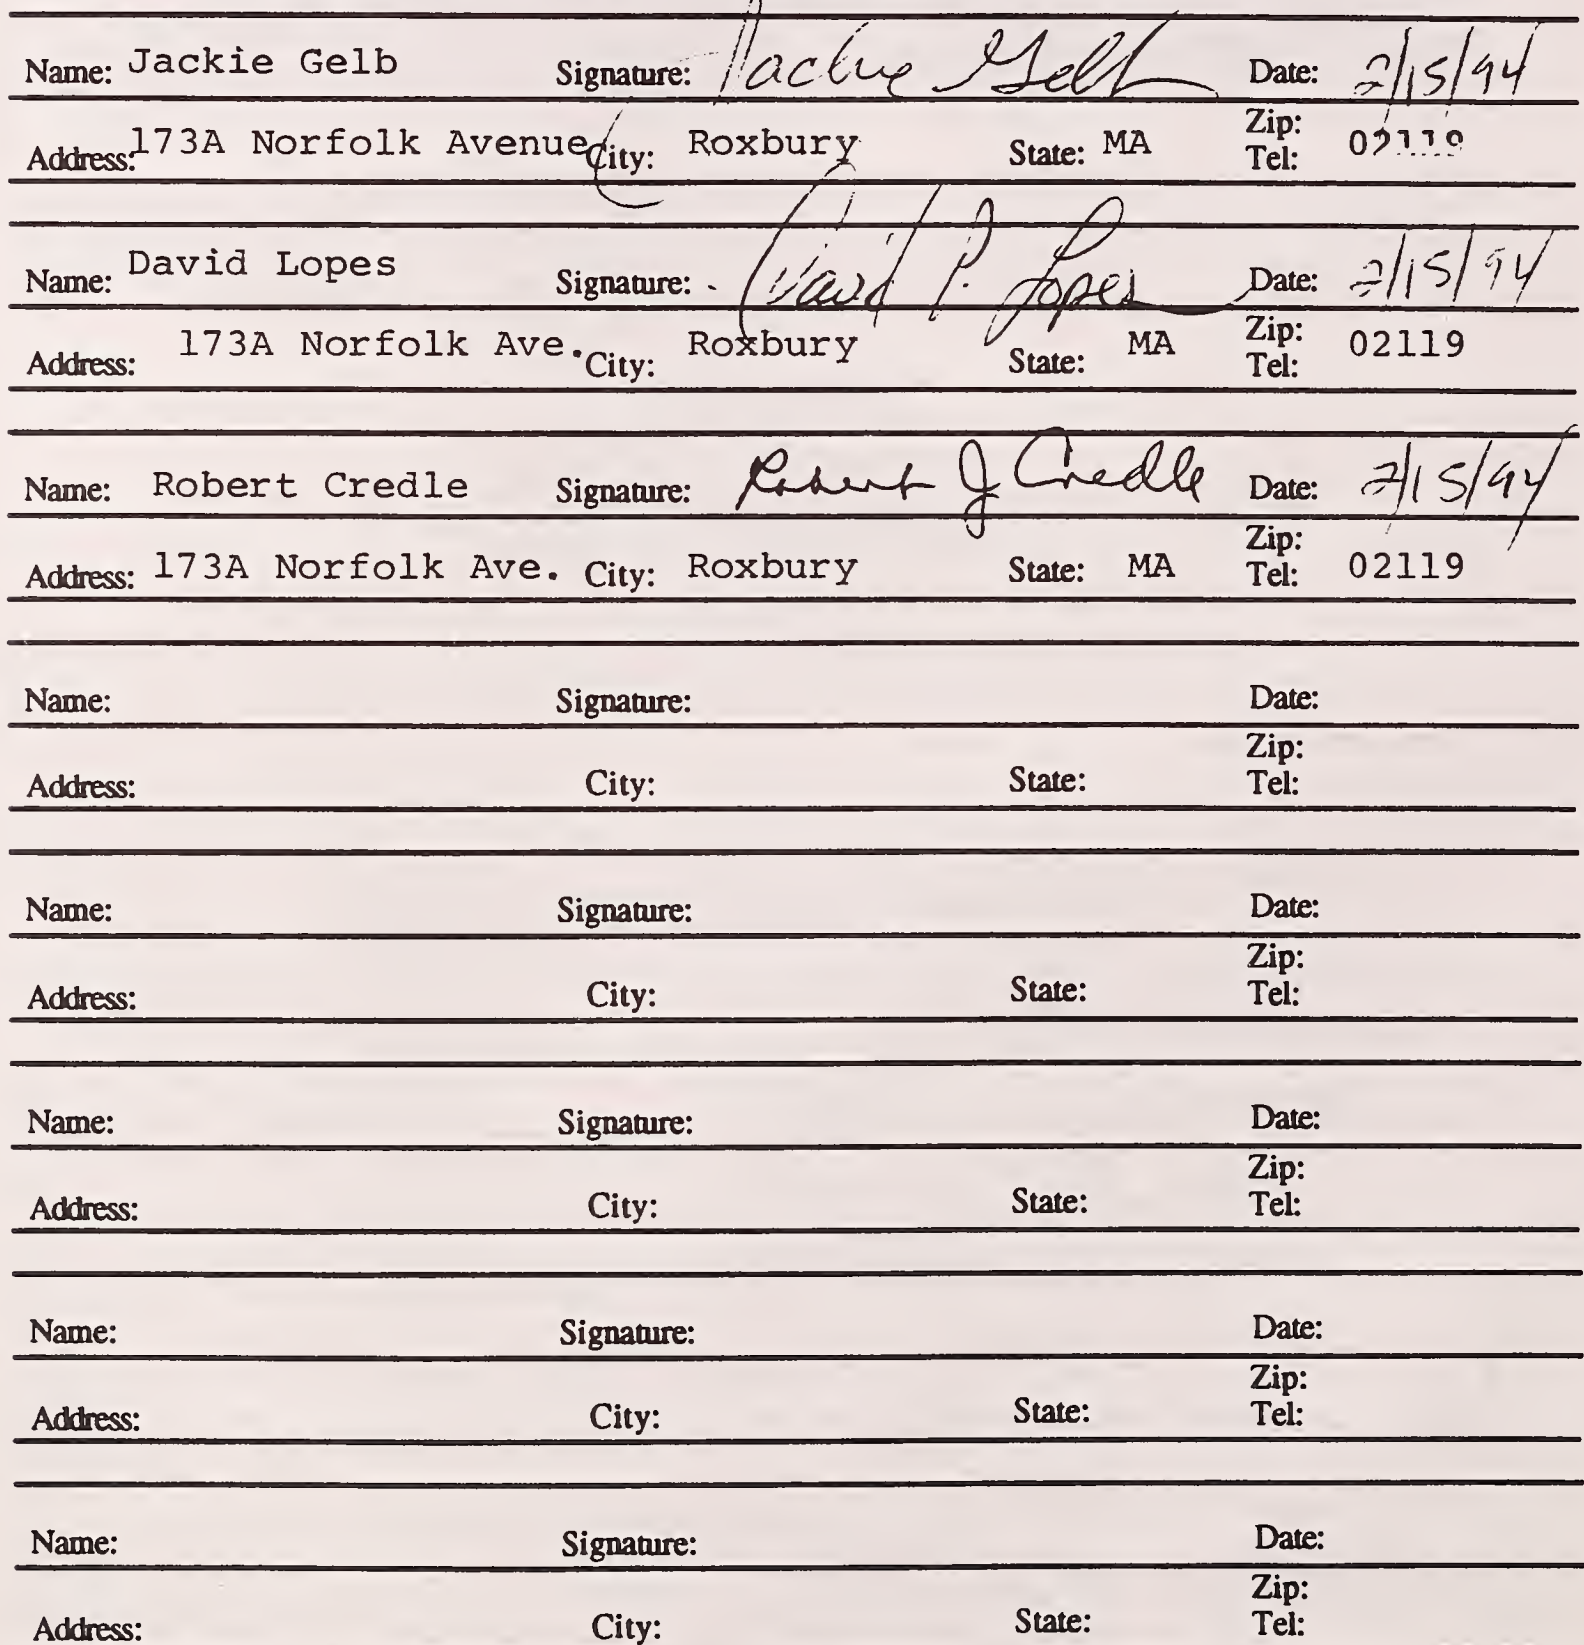 Name: Jackie Gelb Signature: Jackie Gelb Date: 2/15/94
Zip:
Address: 173A Norfolk Avenue City: Roxbury State: MA Tel: 02119
Name: David Lopes Signature: David P. Lopes Date: 2/15/94
Zip:
Address: 173A Norfolk Ave. City: Roxbury State: MA Tel: 02119
Name: Robert Credle Signature: Robert J Credle Date: 2/15/94
Zip:
Address: 173A Norfolk Ave. City: Roxbury State: MA Tel: 02119
Name: Signature: Date:
Zip:
Address: City: State: Tel:
Name: Signature: Date:
Zip:
Address: City: State: Tel:
Name: Signature: Date:
Zip:
Address: City: State: Tel:
Name: Signature: Date:
Zip:
Address: City: State: Tel:
Name: Signature: Date:
Zip:
Address: City: State: Tel: